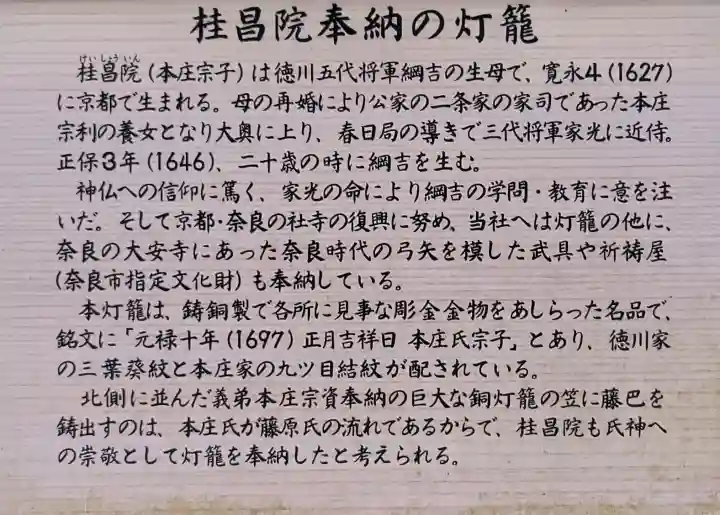 桂昌院奉納の灯籠
けいしょういん
桂昌院(本庄宗子)は徳川五代将軍綱吉の生母で、寛永4(1627)
に京都で生まれる。母の再婚により公家の二条家の家司であった本庄
宗利の養女となり大奥に上り、春日局の導きで三代将軍家光に近侍。
正保3年(1646)、二十歳の時に綱吉を生む。
神仏への信仰に篤く、家光の命により綱吉の学問・教育に意を注
いだ。そして京都・奈良の社寺の復興に努め、当社へは灯籠の他に、
奈良の大安寺にあった奈良時代の弓矢を模した武具や祈祷屋
(奈良市指定文化財)も奉納している。
本灯籠は、鋳銅製で各所に見事な彫金金物をあしらった名品で、
銘文に「元禄十年(1697)正月吉祥日 本庄氏宗子」とあり、徳川家
の三葉葵紋と本庄家の九ツ目結紋が配されている。
北側に並んだ義弟本庄宗資奉納の巨大な銅灯籠の笠に藤巴を
鋳出すのは、本庄氏が藤原氏の流れであるからで、桂昌院も氏神へ
の崇敬として灯籠を奉納したと考えられる。